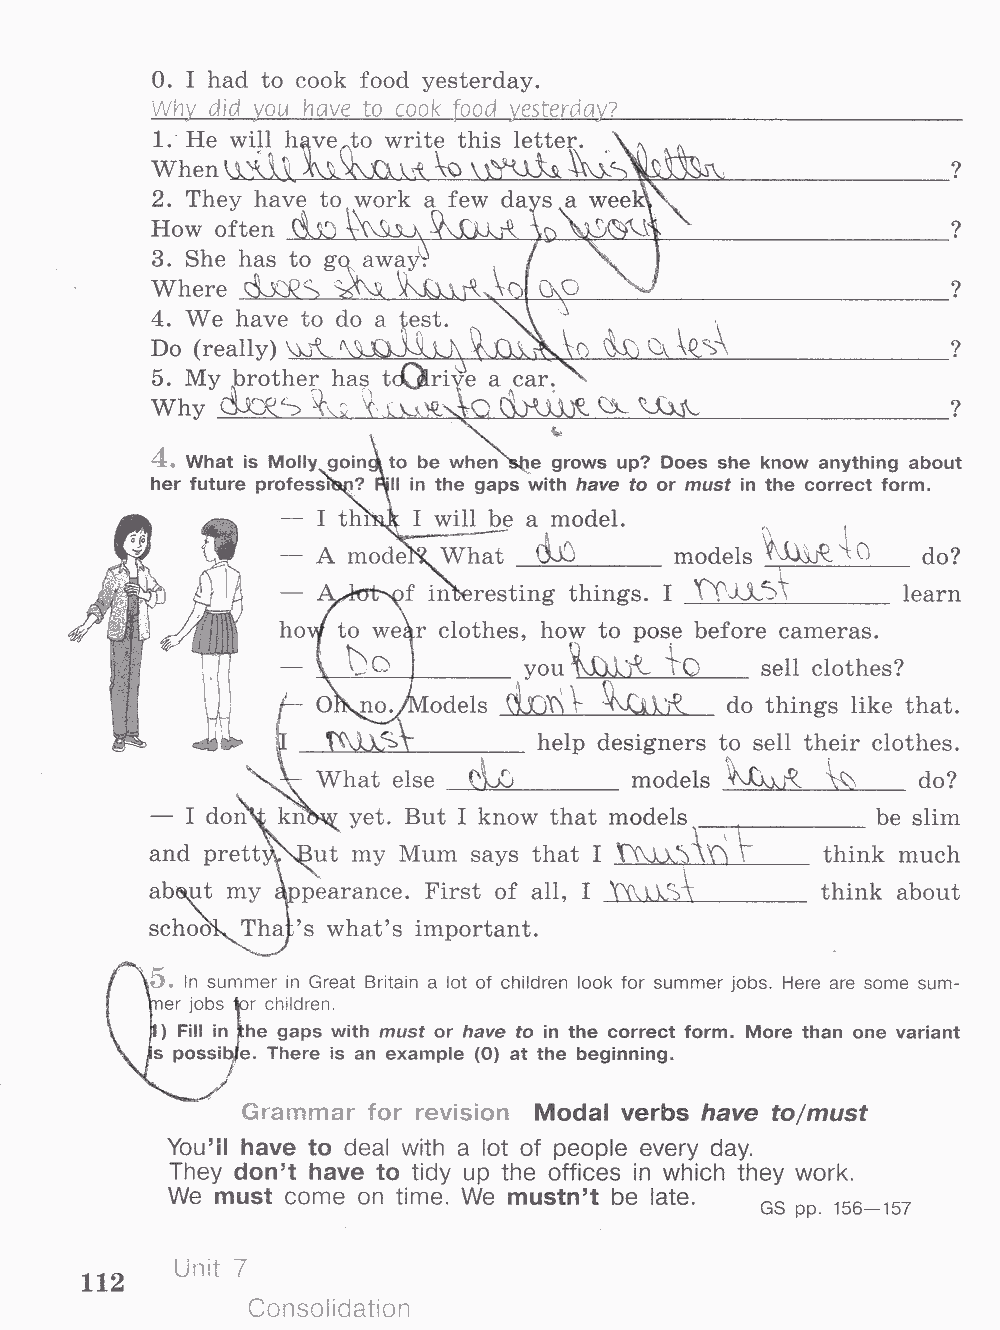 0. I had to cook food yesterday.
Why did you have to cook food yesterday?
1. He will have to write this letter.
When will he have to write this letter ?
2. They have to work a few days a week.
How often do they have to work ?
3. She has to go away.
Where does she have to go ?
4. We have to do a test.
Do (really) we really have to do a test ?
5. My brother has to drive a car.
Why does he have to drive a car ?
4. What is Molly going to be when she grows up? Does she know anything about
her future profession? Fill in the gaps with have to or must in the correct form.
— I think I will be a model.
— A model? What do models have to do?
— A lot of interesting things. I must learn
how to wear clothes, how to pose before cameras.
— Do you have to sell clothes?
— Oh no. Models don't have do things like that.
I must help designers to sell their clothes.
— What else do models have to do?
— I don't know yet. But I know that models be slim
and pretty. But my Mum says that I mustn't think much
about my appearance. First of all, I must think about
school. That's what's important.
5. In summer in Great Britain a lot of children look for summer jobs. Here are some sum-
mer jobs for children.
1) Fill in the gaps with must or have to in the correct form. More than one variant
is possible. There is an example (0) at the beginning.
Grammar for revision Modal verbs have to/must
You'll have to deal with a lot of people every day.
They don't have to tidy up the offices in which they work.
We must come on time. We mustn't be late.
GS pp. 156—157
Unit 7
112
Consolidation